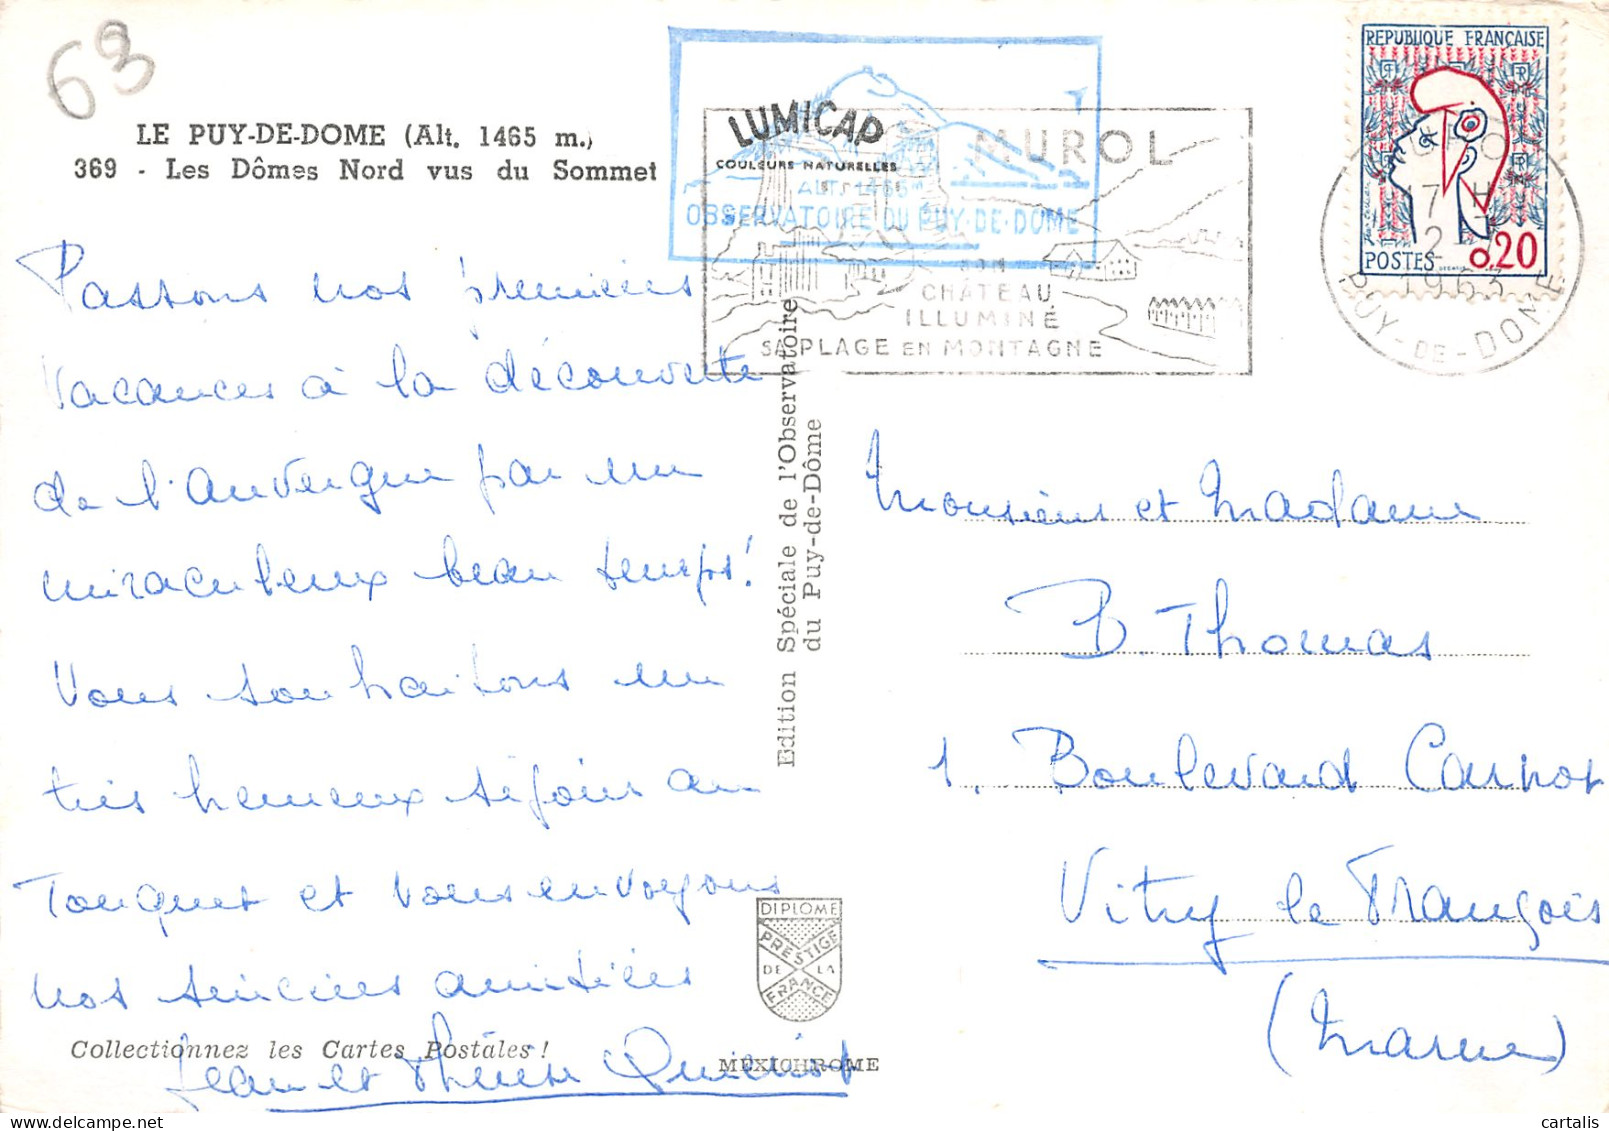 63
LE PUY-DE-DOME (Alt. 1465 m.)
369 - Les Dômes Nord vus du Sommet
Passons nos premières
vacances à la découverte
de l'Auvergne par un
miraculeux beau temps !
Vous souhaitons un
très heureux séjour au
Touquet et vous envoyons
nos sincères amitiés
Jean et Thérèse
Collectionnez les Cartes Postales !
LUMICAP
COULEURS NATURELLES
ALT. 1465 m
OBSERVATOIRE DU PUY-DE-DOME
MUROL
SON
CHÂTEAU
ILLUMINÉ
SA PLAGE EN MONTAGNE
Edition Spéciale de l'Observatoire
du Puy-de-Dôme
DIPLOME
PRESTIGE
DE LA
FRANCE
MEXICHROME
REPUBLIQUE FRANÇAISE
POSTES 0,20
MUROL
17 H
2 - 7
1963
PUY-DE-DOME
Monsieur et Madame
B. Thomas
1. Boulevard Carnot
Vitry le François
(Marne)
cartalis